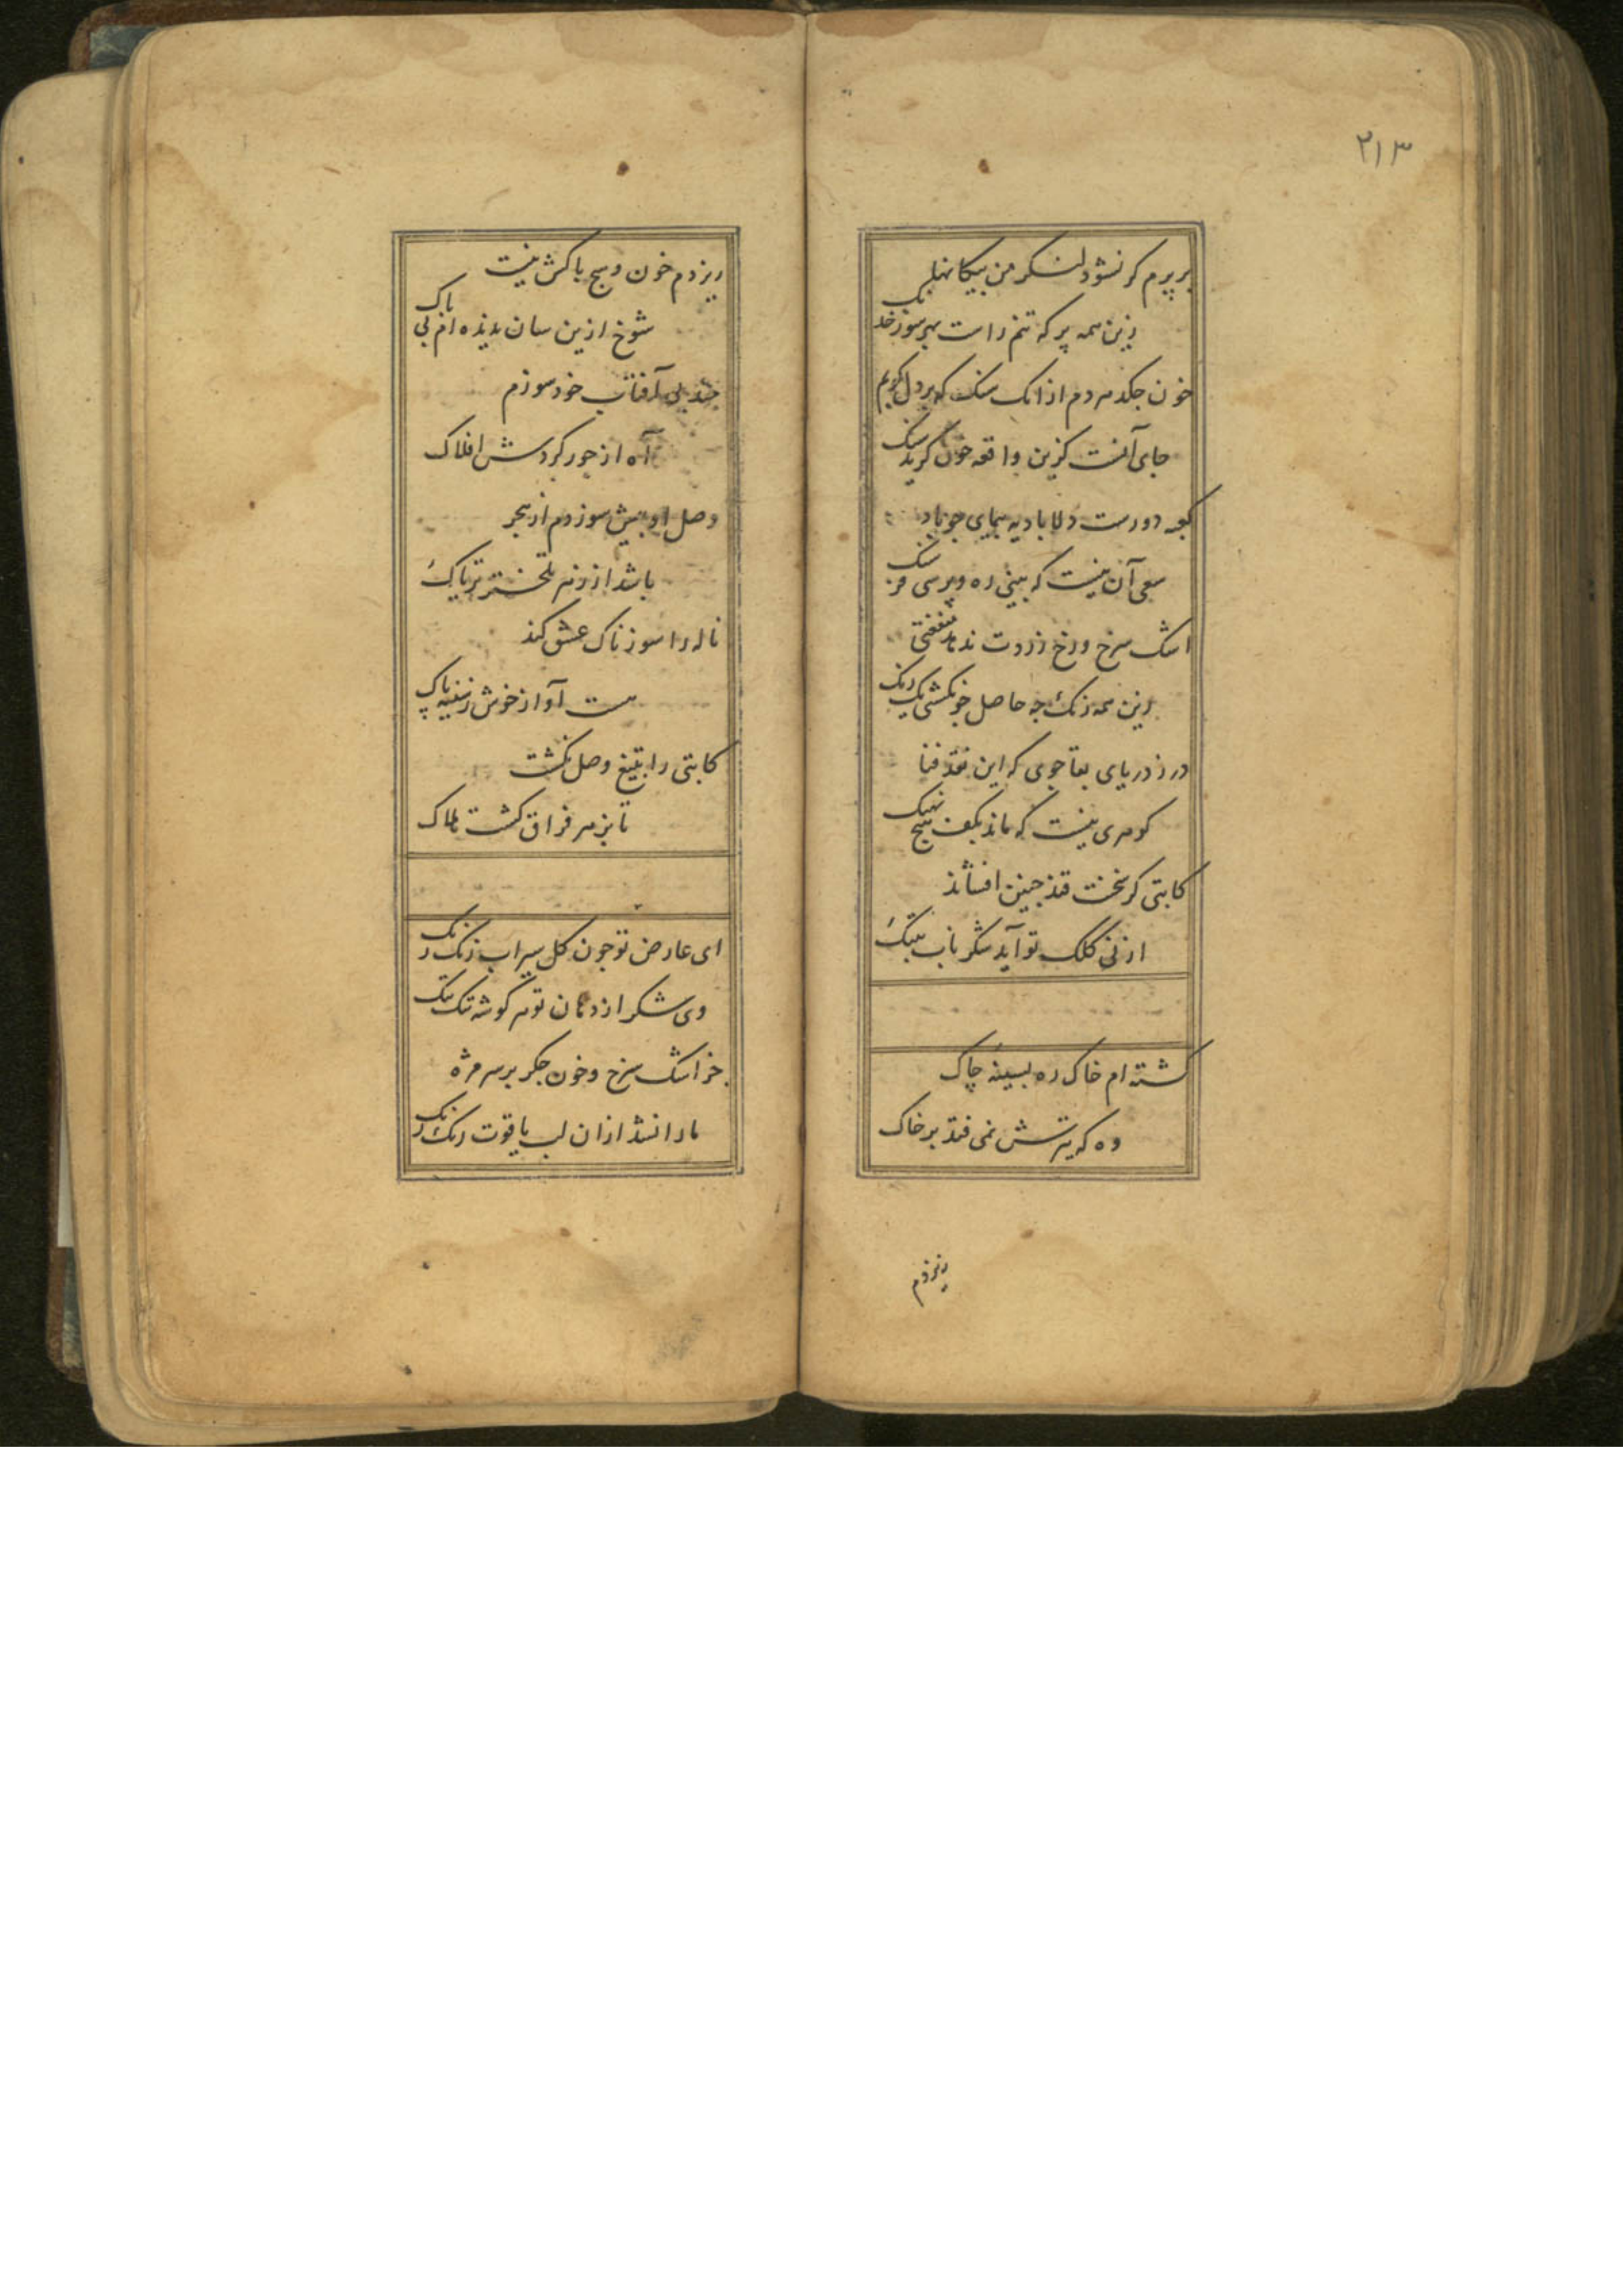 ۲۱۳
بر پرم کر نشود لنکر من پیکانها
زین همه پر که تنم راست بهر سو ز خدنک
خون چکد هر دم از انک سنک که بر دل کوبم
جای آنست کزین واقعه خون کرید سنک
کعبه دورست دلا بادیه پیمای چو باد
سعی آن نیست که بینی ره و پرسی فرسنک
اشک سرخ و رخ زردت ندهد منفعتی
این همه رنک چه حاصل چو نکشتی یک رنک
در ز دریای بقا جوی که این نقد فنا
کوهری نیست که ماند بکف هیچ نهنک
کاتبی کر سخنت قند چنین افشاند
از نی کلک تو آید شکر ناب بتنک
کشته ام خاک ره بسینه چاک
وه که تیرش نمی فتد بر خاک
ریزدم
ریزدم خون و هیچ باکش نیست
شوخ ازین سان ندیده ام بی باک
چند بی آفتاب خود سوزم
آه از جور کردش افلاک
وصل او بیش سوزدم از هجر
باشد از زهر تلختر تریاک
ناله را سوزناک عشق کند
هست آواز خوش ز سینه پاک
کاتبی را بتیغ وصل نکشت
تا بزهر فراق کشت هلاک
ای عارض تو چون کل سیراب رنک رنک
وی شکر از دهان تو هر کوشه تنک تنک
جز اشک سرخ و خون جکر بر سر مژه
ما را نشد از ان لب یاقوت رنک رنک